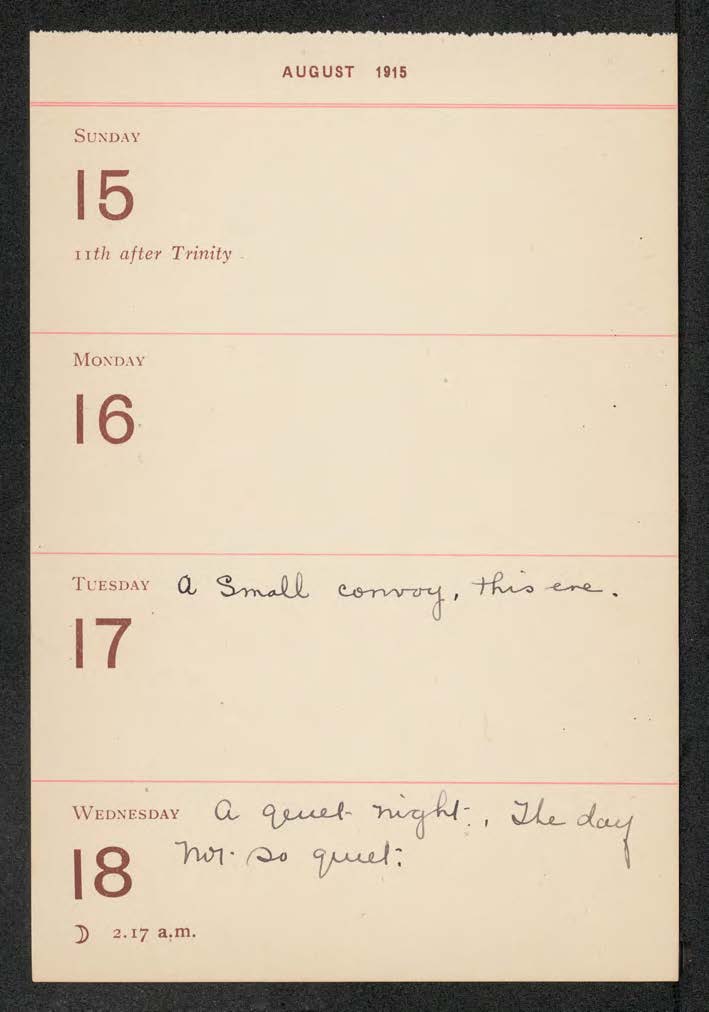 AUGUST 1915
SUNDAY
15
11th after Trinity
MONDAY
16
TUESDAY A Small convoy, this eve.
17
WEDNESDAY A quiet night, The day
not so quiet.
18
☽ 2.17 a.m.